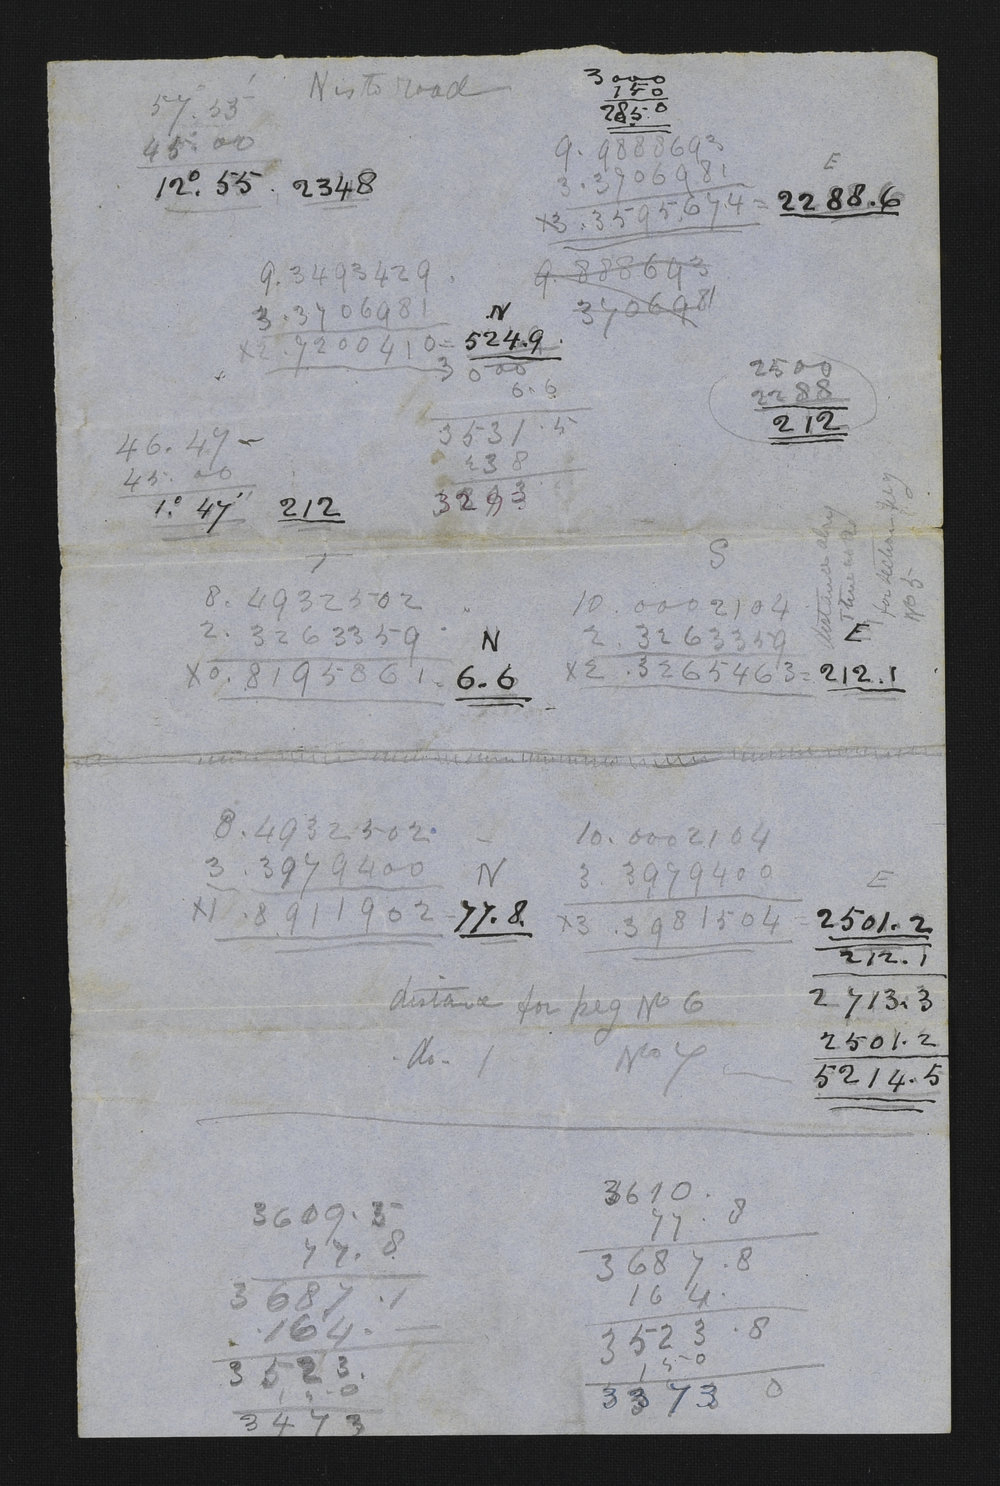 57° 55'
45. 00
12°. 55. 2348
road
3000
150
2850
9.9888693
3.3706981
E
×3.3595674 = 2288.6
9.888693
3706981
9.3493429.
3.3706981
N
×2.7200410 = 524.9.
3000
6.6
3531.5
238
3293
2500
2288
212
46.47
45.00
1°. 47' 212
distance along
for section peg
No 5
T
8.4932502
2.3263359
N
×0.8195861 = 6.6
S
10.0002104
2.3263359
E
×2.3265463 = 212.1
8.4932502
3.3979400
N
×1.8911902 = 77.8.
10.0002104
3.3979400
E
×3.3981504 = 2501.2
212.1
distance for peg No 6 2713.3
2501.2
do. No 7 5214.5
3609.5
77.8
3687.1
164.
3523.
150
3473
3610.
77.8
3687.8
164.
3523.8
150
3373 0